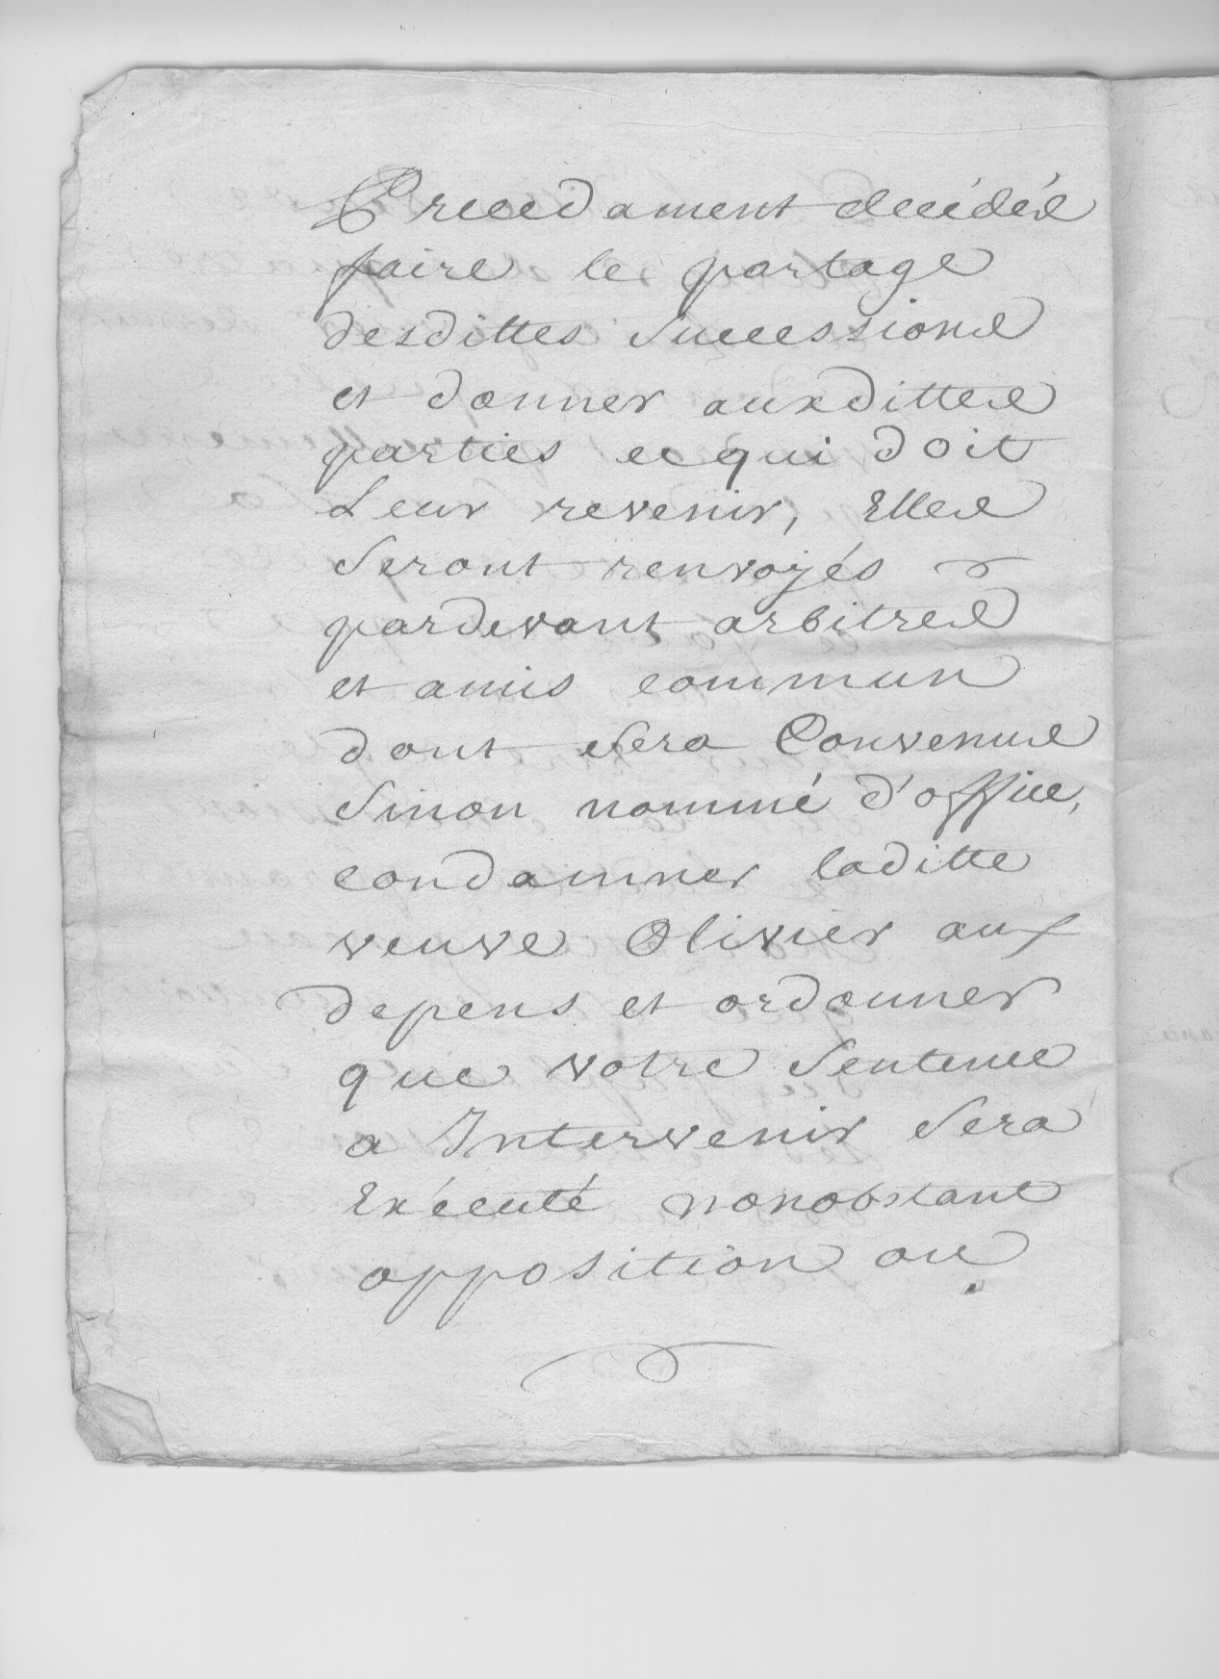 Precedament decidés
faire le partage
desdittes Successions
et donner auxdittes
parties ce qui doit
Leur revenir, Elles
Seront renvoyés
pardevant arbitres
et amis commun
dont Sera Convenues
Sinon nommé d'office,
condamner laditte
veuve Olivier aux
depens et ordonner
que votre Sentence
a Intervenir Sera
Exécuté nonobstant
opposition ou